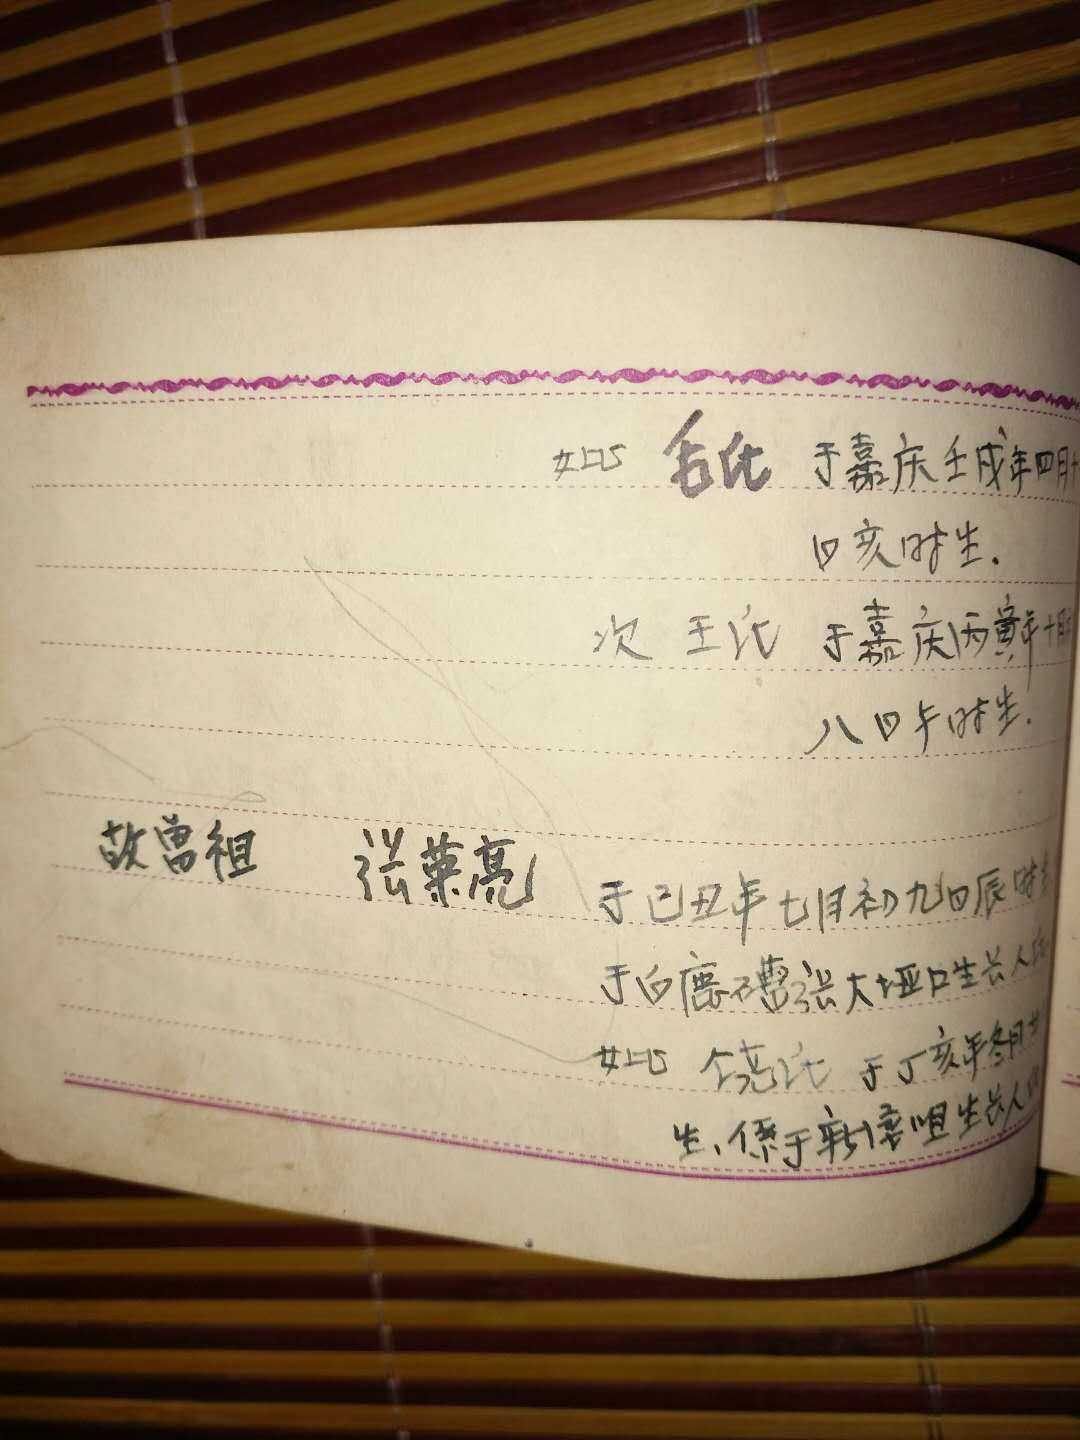 妣 氏 于嘉庆壬戌年四月十
日亥时生.
次 王氏 于嘉庆丙寅年十月
八日午时生.
故曾祖 张荣亮 于己丑年七月初九日辰时生
于白鹿 张大垭口生长人
妣 氏 于丁亥年冬月廿
生、系于新 咀生长人